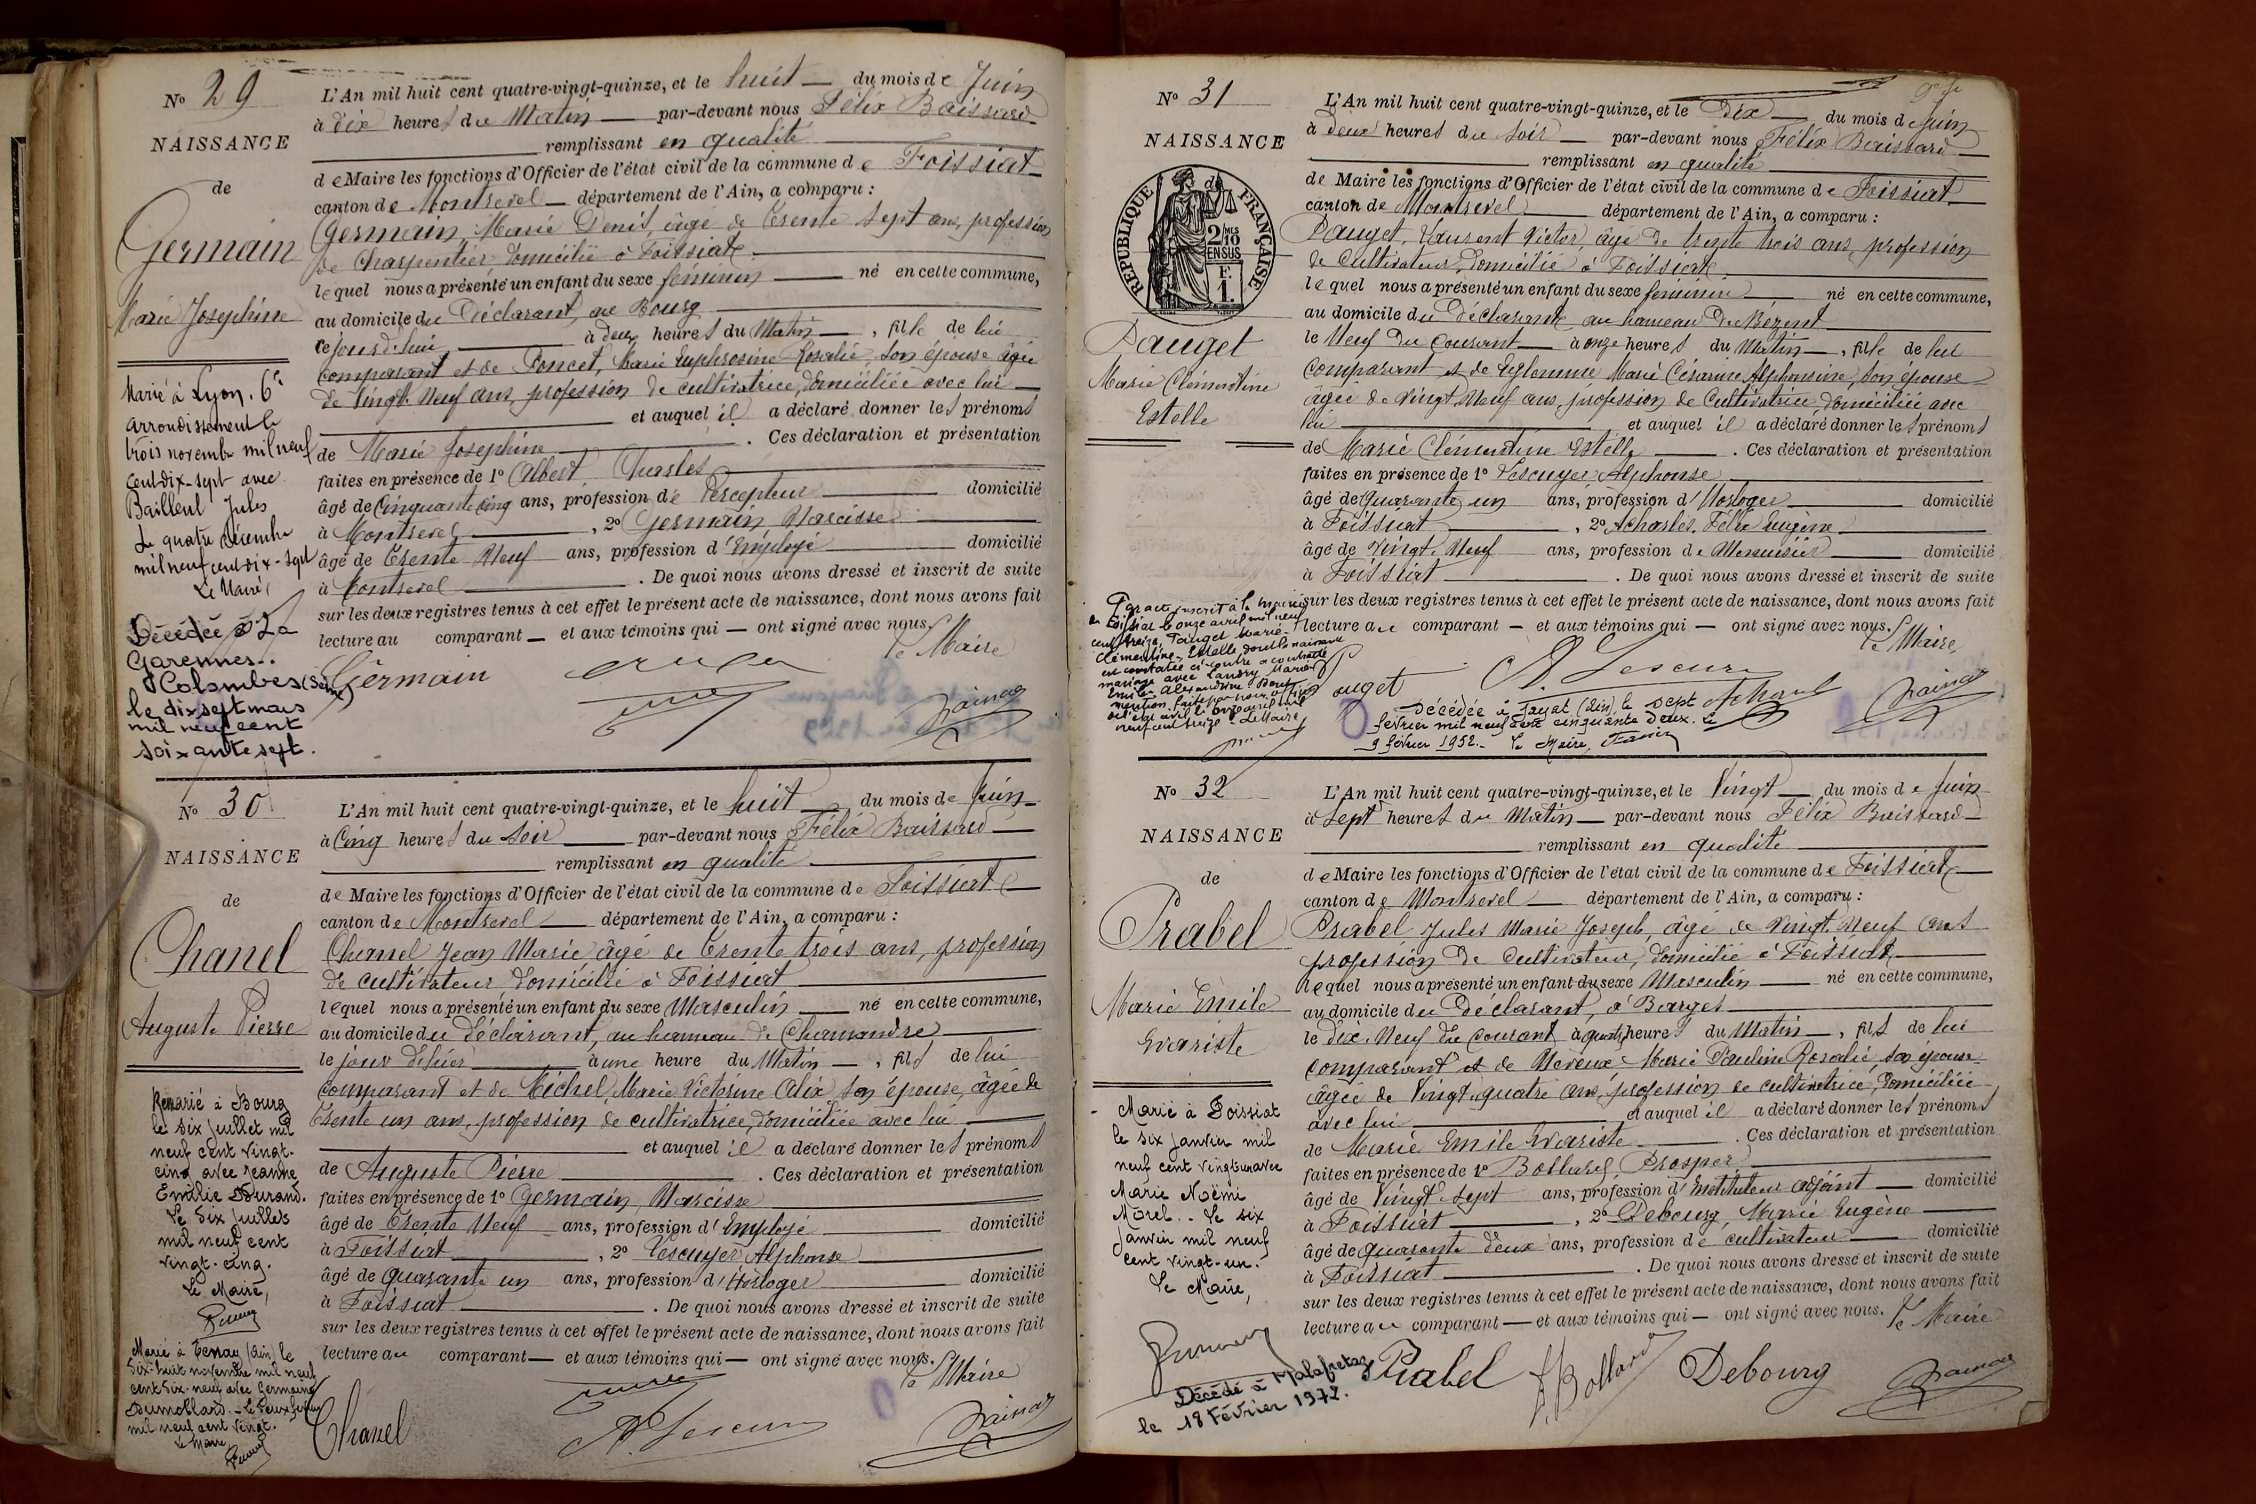 No 29
NAISSANCE
de
Germain
Marie Josephine
Marié à Lyon. 6e
arrondissement le
trois novembre mil neuf
cent dix-sept avec
Bailleul Jules
Le quatre décembre
mil neuf cent dix-sept
Le Maire,
Décédée à La
Garennes-
Colombes (Seine)
le dix sept mars
mil neuf cent
soixante sept.
L'An mil huit cent quatre-vingt-quinze, et le huit du mois de Juin
à dix heures du Matin par-devant nous Félix Baissard
remplissant en qualité
de Maire les fonctions d'Officier de l'état civil de la commune de Foissiat
canton de Montrevel département de l'Ain, a comparu :
Germain, Marie Denis, âgé de trente sept ans, profession
de Charpentier, domicilié à Foissiat
lequel nous a présenté un enfant du sexe féminin né en cette commune,
au domicile du Déclarant, au Bourg
ce jourd'hui à deux heures du Matin, fille de lui
comparant et de Poncet, Marie Euphrosine Rosalie son épouse âgée
de Vingt Neuf ans, profession de cultivatrice, domiciliée avec lui
et auquel il a déclaré donner les prénoms
de Marie Josephine. Ces déclaration et présentation
faites en présence de 1o Albert, Charles
âgé de Cinquante cinq ans, profession de Percepteur domicilié
à Montrevel, 2o Germain Narcisse
âgé de Trente Neuf ans, profession d'Employé domicilié
à Montrevel. De quoi nous avons dressé et inscrit de suite
sur les deux registres tenus à cet effet le présent acte de naissance, dont nous avons fait
lecture au comparant et aux témoins qui ont signé avec nous.
Le Maire
Germain
No 30
NAISSANCE
de
Chanel
Auguste Pierre
Remarié à Bourg
le six Juillet mil
neuf cent vingt-
cinq avec Jeanne
Emilie Durand.
Le six Juillet
mil neuf cent
vingt-cinq.
Le Maire,
Marié à Ternay (Ain) le
dix-huit novembre mil neuf
cent dix-neuf avec Germaine
Dumollard. Le deux février
mil neuf cent vingt.
Le Maire
L'An mil huit cent quatre-vingt-quinze, et le huit du mois de Juin
à Cinq heures du Soir par-devant nous Félix Baissard
remplissant en qualité
de Maire les fonctions d'Officier de l'état civil de la commune de Foissiat
canton de Montrevel département de l'Ain, a comparu :
Chanel Jean Marie âgé de Trente trois ans, profession
de cultivateur domicilié à Foissiat
lequel nous a présenté un enfant du sexe Masculin né en cette commune,
au domicile du Déclarant, au hameau de Chamandre
le jour d'hier à une heure du Matin, fils de lui
comparant et de Michel, Marie Victorine Alix son épouse, âgée de
Trente un ans, profession de cultivatrice, domiciliée avec lui
et auquel il a déclaré donner les prénoms
de Auguste Pierre. Ces déclaration et présentation
faites en présence de 1o Germain, Narcisse
âgé de Trente Neuf ans, profession d'Employé domicilié
à Foissiat, 2o Lescuyer Alphonse
âgé de quarante un ans, profession d'Horloger domicilié
à Foissiat. De quoi nous avons dressé et inscrit de suite
sur les deux registres tenus à cet effet le présent acte de naissance, dont nous avons fait
lecture au comparant et aux témoins qui ont signé avec nous.
Le Maire
Chanel
No 31
NAISSANCE
de
RÉPUBLIQUE FRANÇAISE
2/10MES
EN SUS
F.
1.
Pauget
Marie Clémentine
Estelle
Par acte inscrit à la mairie
de Foissiat le onze avril mil neuf
cent treize, Pauget Marie-
Clémentine-Estelle dont la naissance
est constatée ci-contre a contracté
mariage avec Landry Marie
L'An mil huit cent quatre-vingt-quinze, et le Dix du mois de Juin
à deux heures du Soir par-devant nous Félix Baissard
remplissant en qualité
de Maire les fonctions d'Officier de l'état civil de la commune de Foissiat
canton de Montrevel département de l'Ain, a comparu :
Pauget, Laurent Victor, âgé de trente trois ans, profession
de Cultivateur, domicilié à Foissiat
lequel nous a présenté un enfant du sexe féminin né en cette commune,
au domicile du déclarant, au hameau de Bezent
le Neuf du courant à onze heures du Matin, fille de lui
comparant et de Marie Césarine Alphonsine, son épouse
âgée de Vingt Neuf ans, profession de Cultivatrice domiciliée avec
lui et auquel il a déclaré donner les prénoms
de Marie Clémentine Estelle. Ces déclaration et présentation
faites en présence de 1o Lescuyer, Alphonse
âgé de quarante un ans, profession d'Horloger domicilié
à Foissiat, 2o Acharles, Félix Eugène
âgé de Vingt Neuf ans, profession de Menuisier domicilié
à Foissiat. De quoi nous avons dressé et inscrit de suite
sur les deux registres tenus à cet effet le présent acte de naissance, dont nous avons fait
lecture au comparant et aux témoins qui ont signé avec nous.
Le Maire
Pouget
Décédée à Jayat (Ain), le sept
février mil neuf cent cinquante deux. Le
9 février 1952. Le Maire,
No 32
NAISSANCE
de
Prabel
Marie Emile
Evariste
Marié à Foissiat
le six janvier mil
neuf cent vingt un avec
Marie Noëmi
Morel. Le six
Janvier mil neuf
cent vingt-un.
Le Maire,
Décédé à Malafretaz
le 18 Février 1972.
L'An mil huit cent quatre-vingt-quinze, et le Vingt du mois de Juin
à sept heures du Matin par-devant nous Félix Baissard
remplissant en qualité
de Maire les fonctions d'Officier de l'état civil de la commune de Foissiat
canton de Montrevel département de l'Ain, a comparu :
Prabel Jules Marie Joseph, âgé de Vingt Neuf ans
profession de cultivateur, domicilié à Foissiat
lequel nous a présenté un enfant du sexe Masculin né en cette commune,
au domicile du Déclarant, à Barges
le Dix-Neuf du Courant à quatre heures du Matin, fils de lui
comparant et de Neveux Marie Pauline Rosalie son épouse
âgée de Vingt quatre ans, profession de cultivatrice, domiciliée
avec lui et auquel il a déclaré donner les prénoms
de Marie Emile Evariste. Ces déclaration et présentation
faites en présence de 1o Bollard, Prosper
âgé de Vingt-Sept ans, profession d'Instituteur adjoint domicilié
à Foissiat, 2o Debourg, Marie Eugène
âgé de quarante deux ans, profession de cultivateur domicilié
à Foissiat. De quoi nous avons dressé et inscrit de suite
sur les deux registres tenus à cet effet le présent acte de naissance, dont nous avons fait
lecture au comparant et aux témoins qui ont signé avec nous. Le Maire
Prabel Bollard Debourg